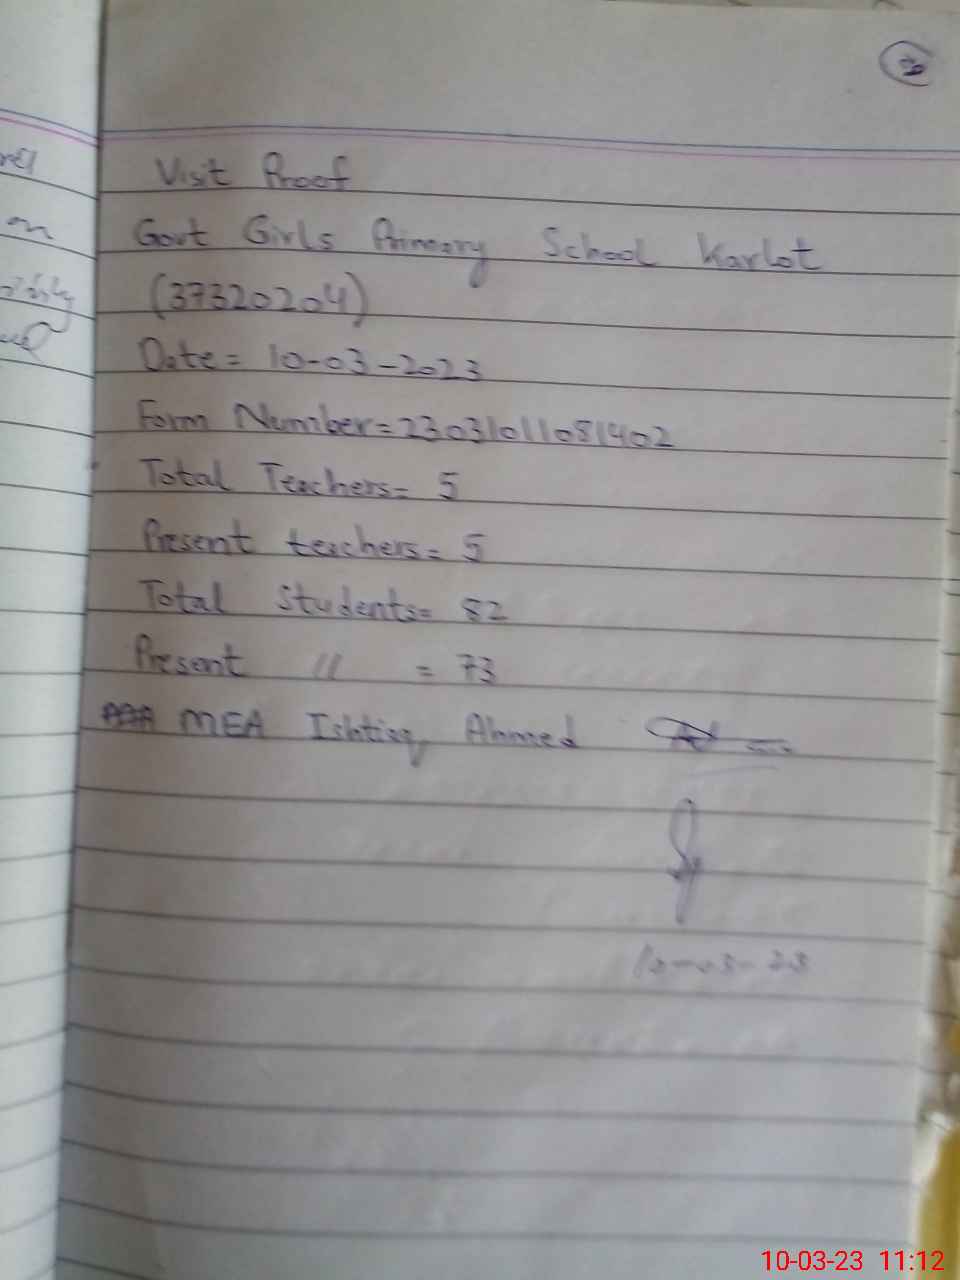 Visit Proof
Govt Girls Primary School Karlot
(37320204)
Date = 10-03-2023
Form Number = 23031011081402
Total Teachers = 5
Present teachers = 5
Total Students = 82
Present 〃 = 73
MEA Ishtiaq Ahmed
10-03-23
10-03-23 11:12